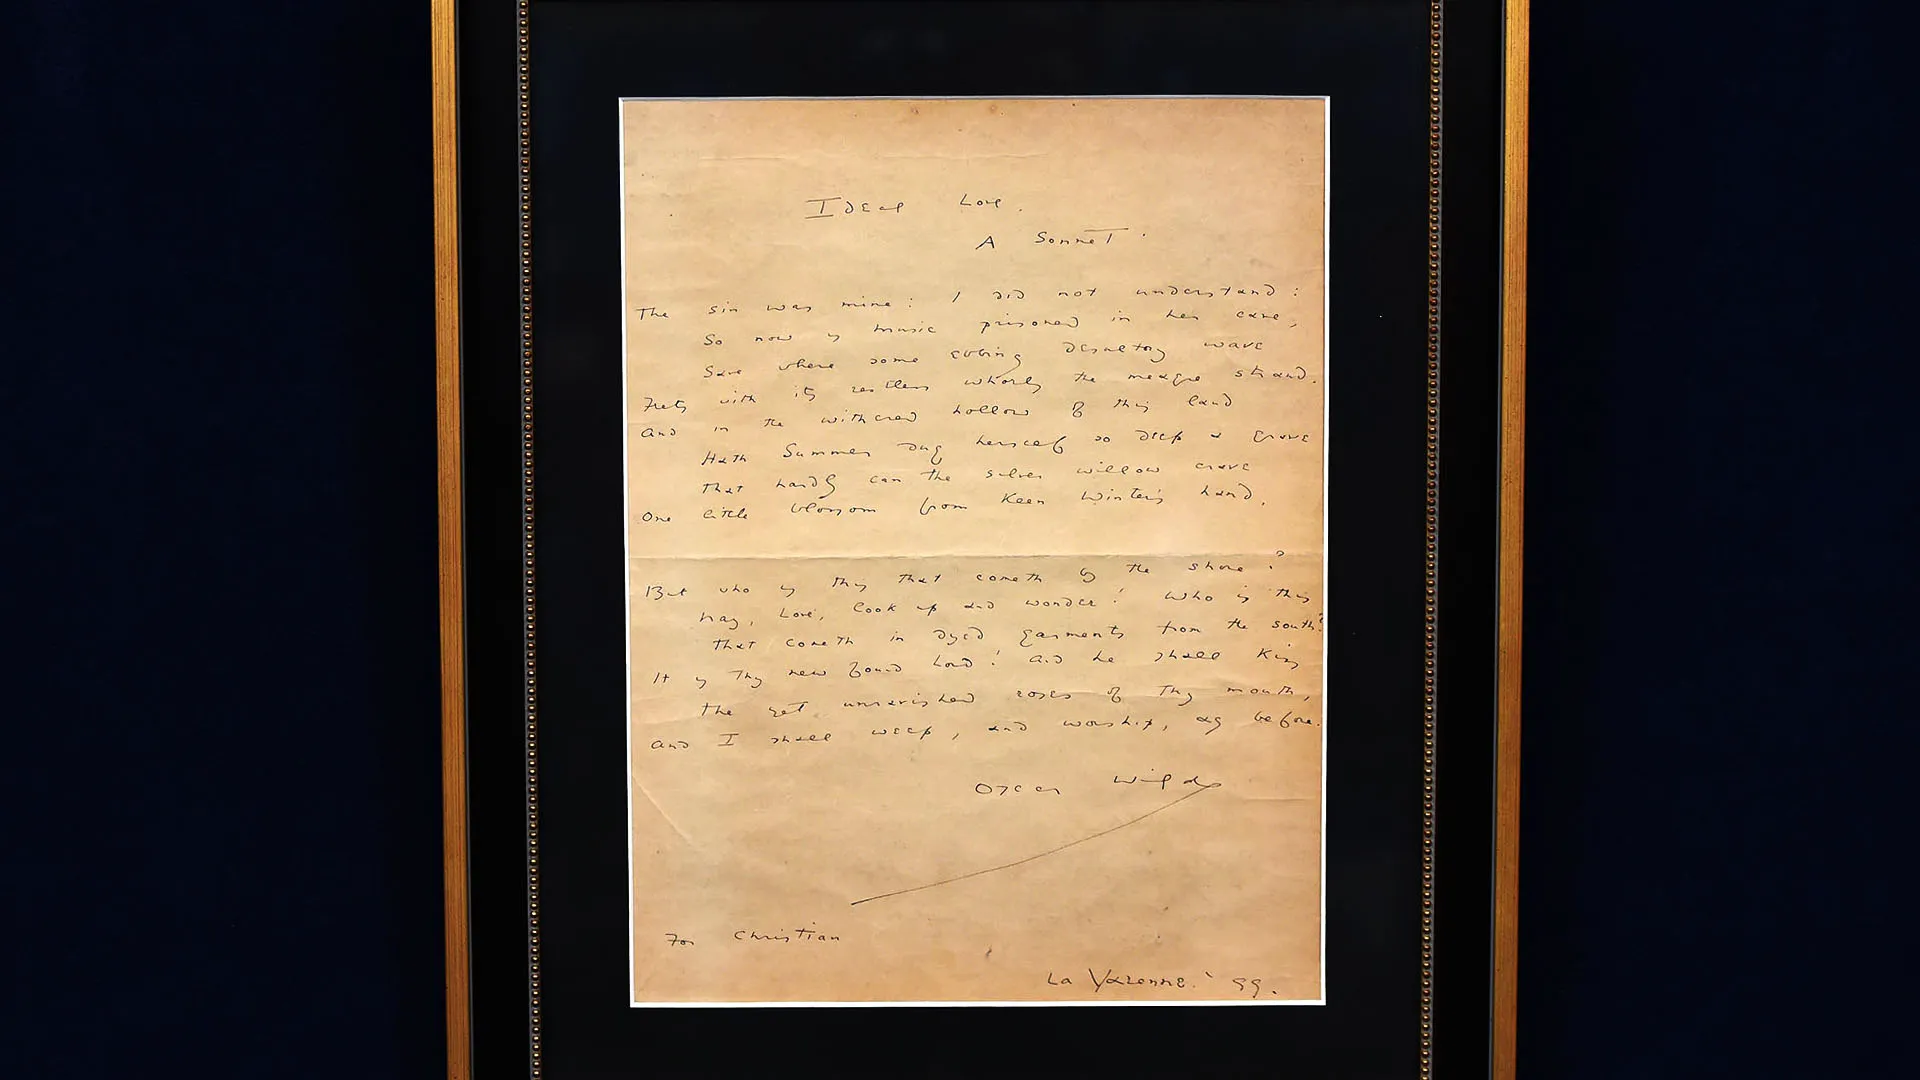 Ideal Love.
A Sonnet.
The sin was mine: I did not understand:
So now is music prisoned in her cave,
Save where some ebbing desultory wave
Frets with its restless whirls the meagre strand.
And in the withered hollow of this land
Hath Summer dug herself so deep a grave
That hardly can the silver willow crave
One little blossom from Keen Winter's hand.
But who is this that cometh by the shore?
Nay, Love, look up and wonder! Who is this
That cometh in dyed garments from the south?
It is Thy new found Lord! and he shall Kiss
The yet unravished roses of Thy mouth,
And I shall weep, and worship, as before.
Oscar Wilde
For Christian
La Varenne. '99.